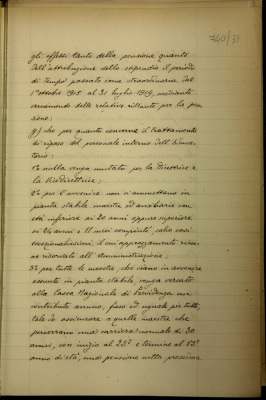 740/33
gli effetti tanto della pensione quanto
dell'attribuzione dello stipendio il periodo
di tempo passato come straordinario dal
1° ottobre 1915 al 31 luglio 1919, mediante
versamento delle relative ritenute per la pen
sione;
g) che per quanto concerne il trattamento
di riposo del personale interno dell'
torio:
1° nulla venga mutato per la Direttrice e
la Vicedirettrice;
2° per l'avvenire non si ammettano in
pianta stabile maestre ed ausiliarie con
età inferiore ai 20 anni oppure superiore
ai 24 anni e 11 mesi compiuti, salvo casi
eccezionalissimi il cui apprezzamento rima-
ne riservato all'Amministrazione;
3° per tutte le maestre, che siano in avvenire
assunte in pianta stabile, venga versato
alla Cassa Nazionale di Previdenza un
contributo annuo, fisso ed uguale per tutte,
tale da assicurare a quelle maestre che
percorrano una carriera normale di 30
anni, con inizio al 22° e termine al 52°
anno di età, una pensione netta prossima